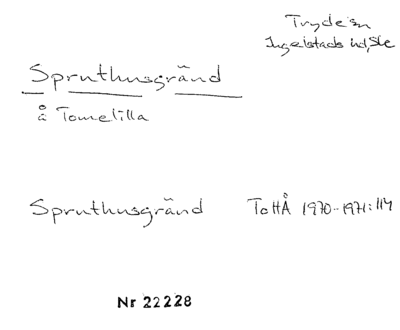 Tryde sn
Ingelstads hd, Skå
Spruthusgränd
å Tomelilla
Spruthusgränd ToHÅ 1970-1971:114
Nr 22228